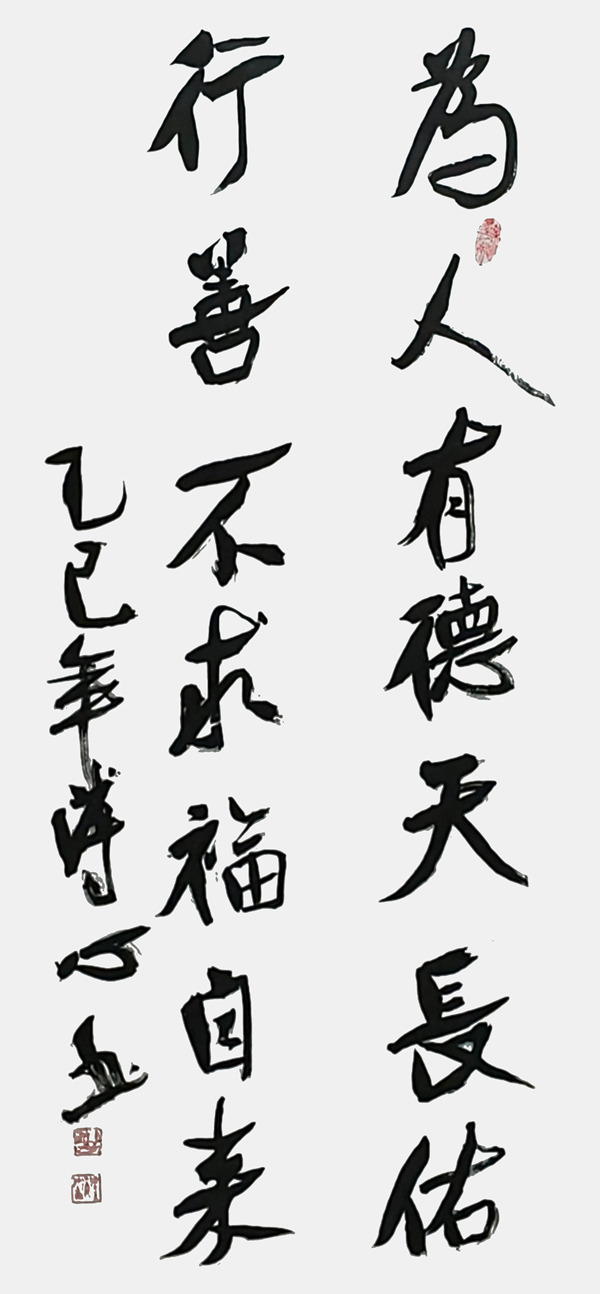 為人有德天長佑
行善不求福自来
乙巳年 心